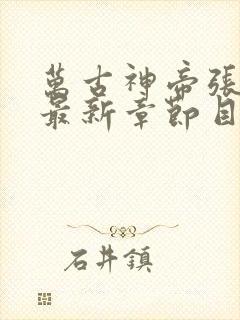 萬古神帝張
最新章節目
石井鎮